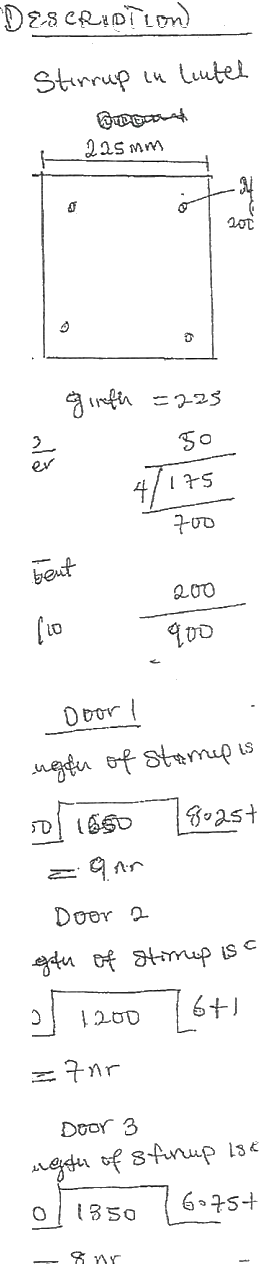 DESCRIPTION
Stirrup in lintel
225mm
200
girth = 225
50
er
4/ 175
700
bent
200
900
Door 1
ngth of stirrup is
1650 8.25+
= 9nr
Door 2
gth of stirrup is c
1200 6+1
= 7nr
Door 3
ngth of stirrup is c
0 1350 6.75+
= 8nr